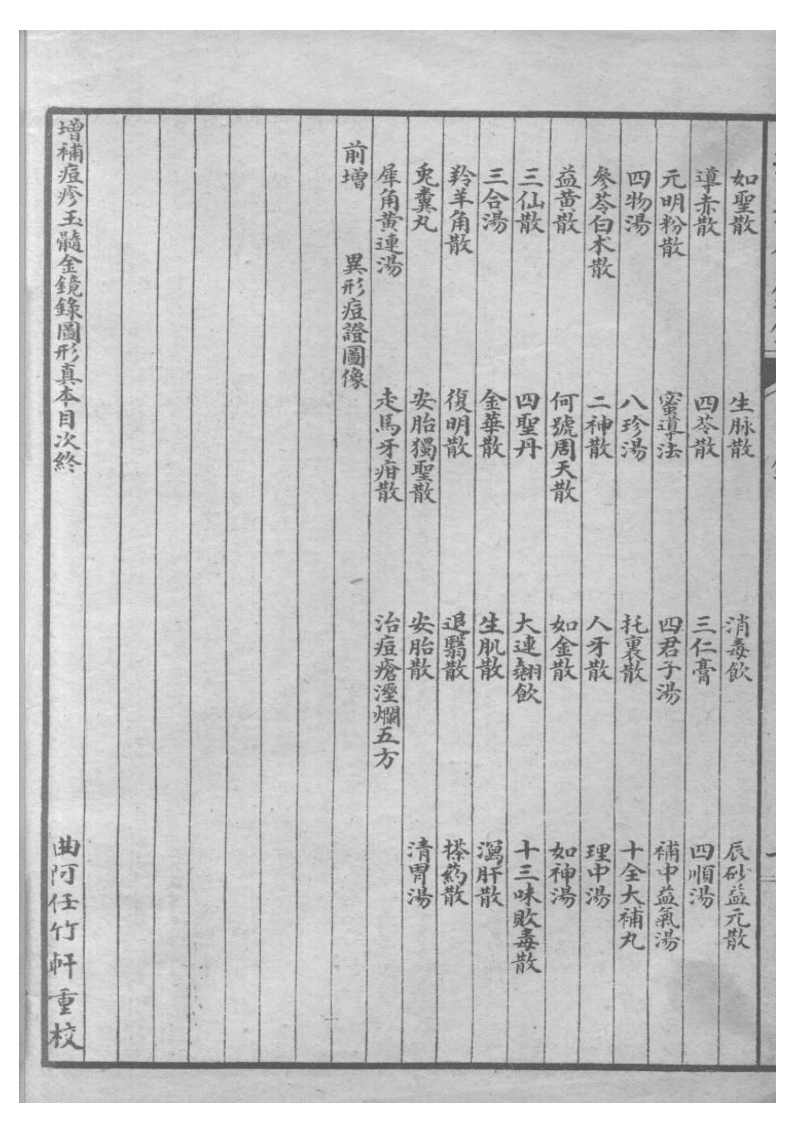 如聖散　生脉散　消毒飲　辰砂益元散
導赤散　四苓散　三仁膏　四順湯
元明粉散　蜜導法　四君子湯　補中益氣湯
四物湯　八珍湯　托裏散　十全大補丸
參苓白朮散　二神散　人牙散　理中湯
益黃散　何號周天散　如金散　如神湯
三仙散　四聖丹　大連翹飲　十三味敗毒散
三合湯　金華散　生肌散　瀉肝散
羚羊角散　復明散　退翳散　搽藥散
兎糞丸　安胎獨聖散　安胎散　清胃湯
犀角黃連湯　走馬牙疳散　治痘瘡溼爛五方
前增　異形痘證圖像
增補痘疹玉髓金鏡錄圖形真本目次終　曲阿任竹軒重校